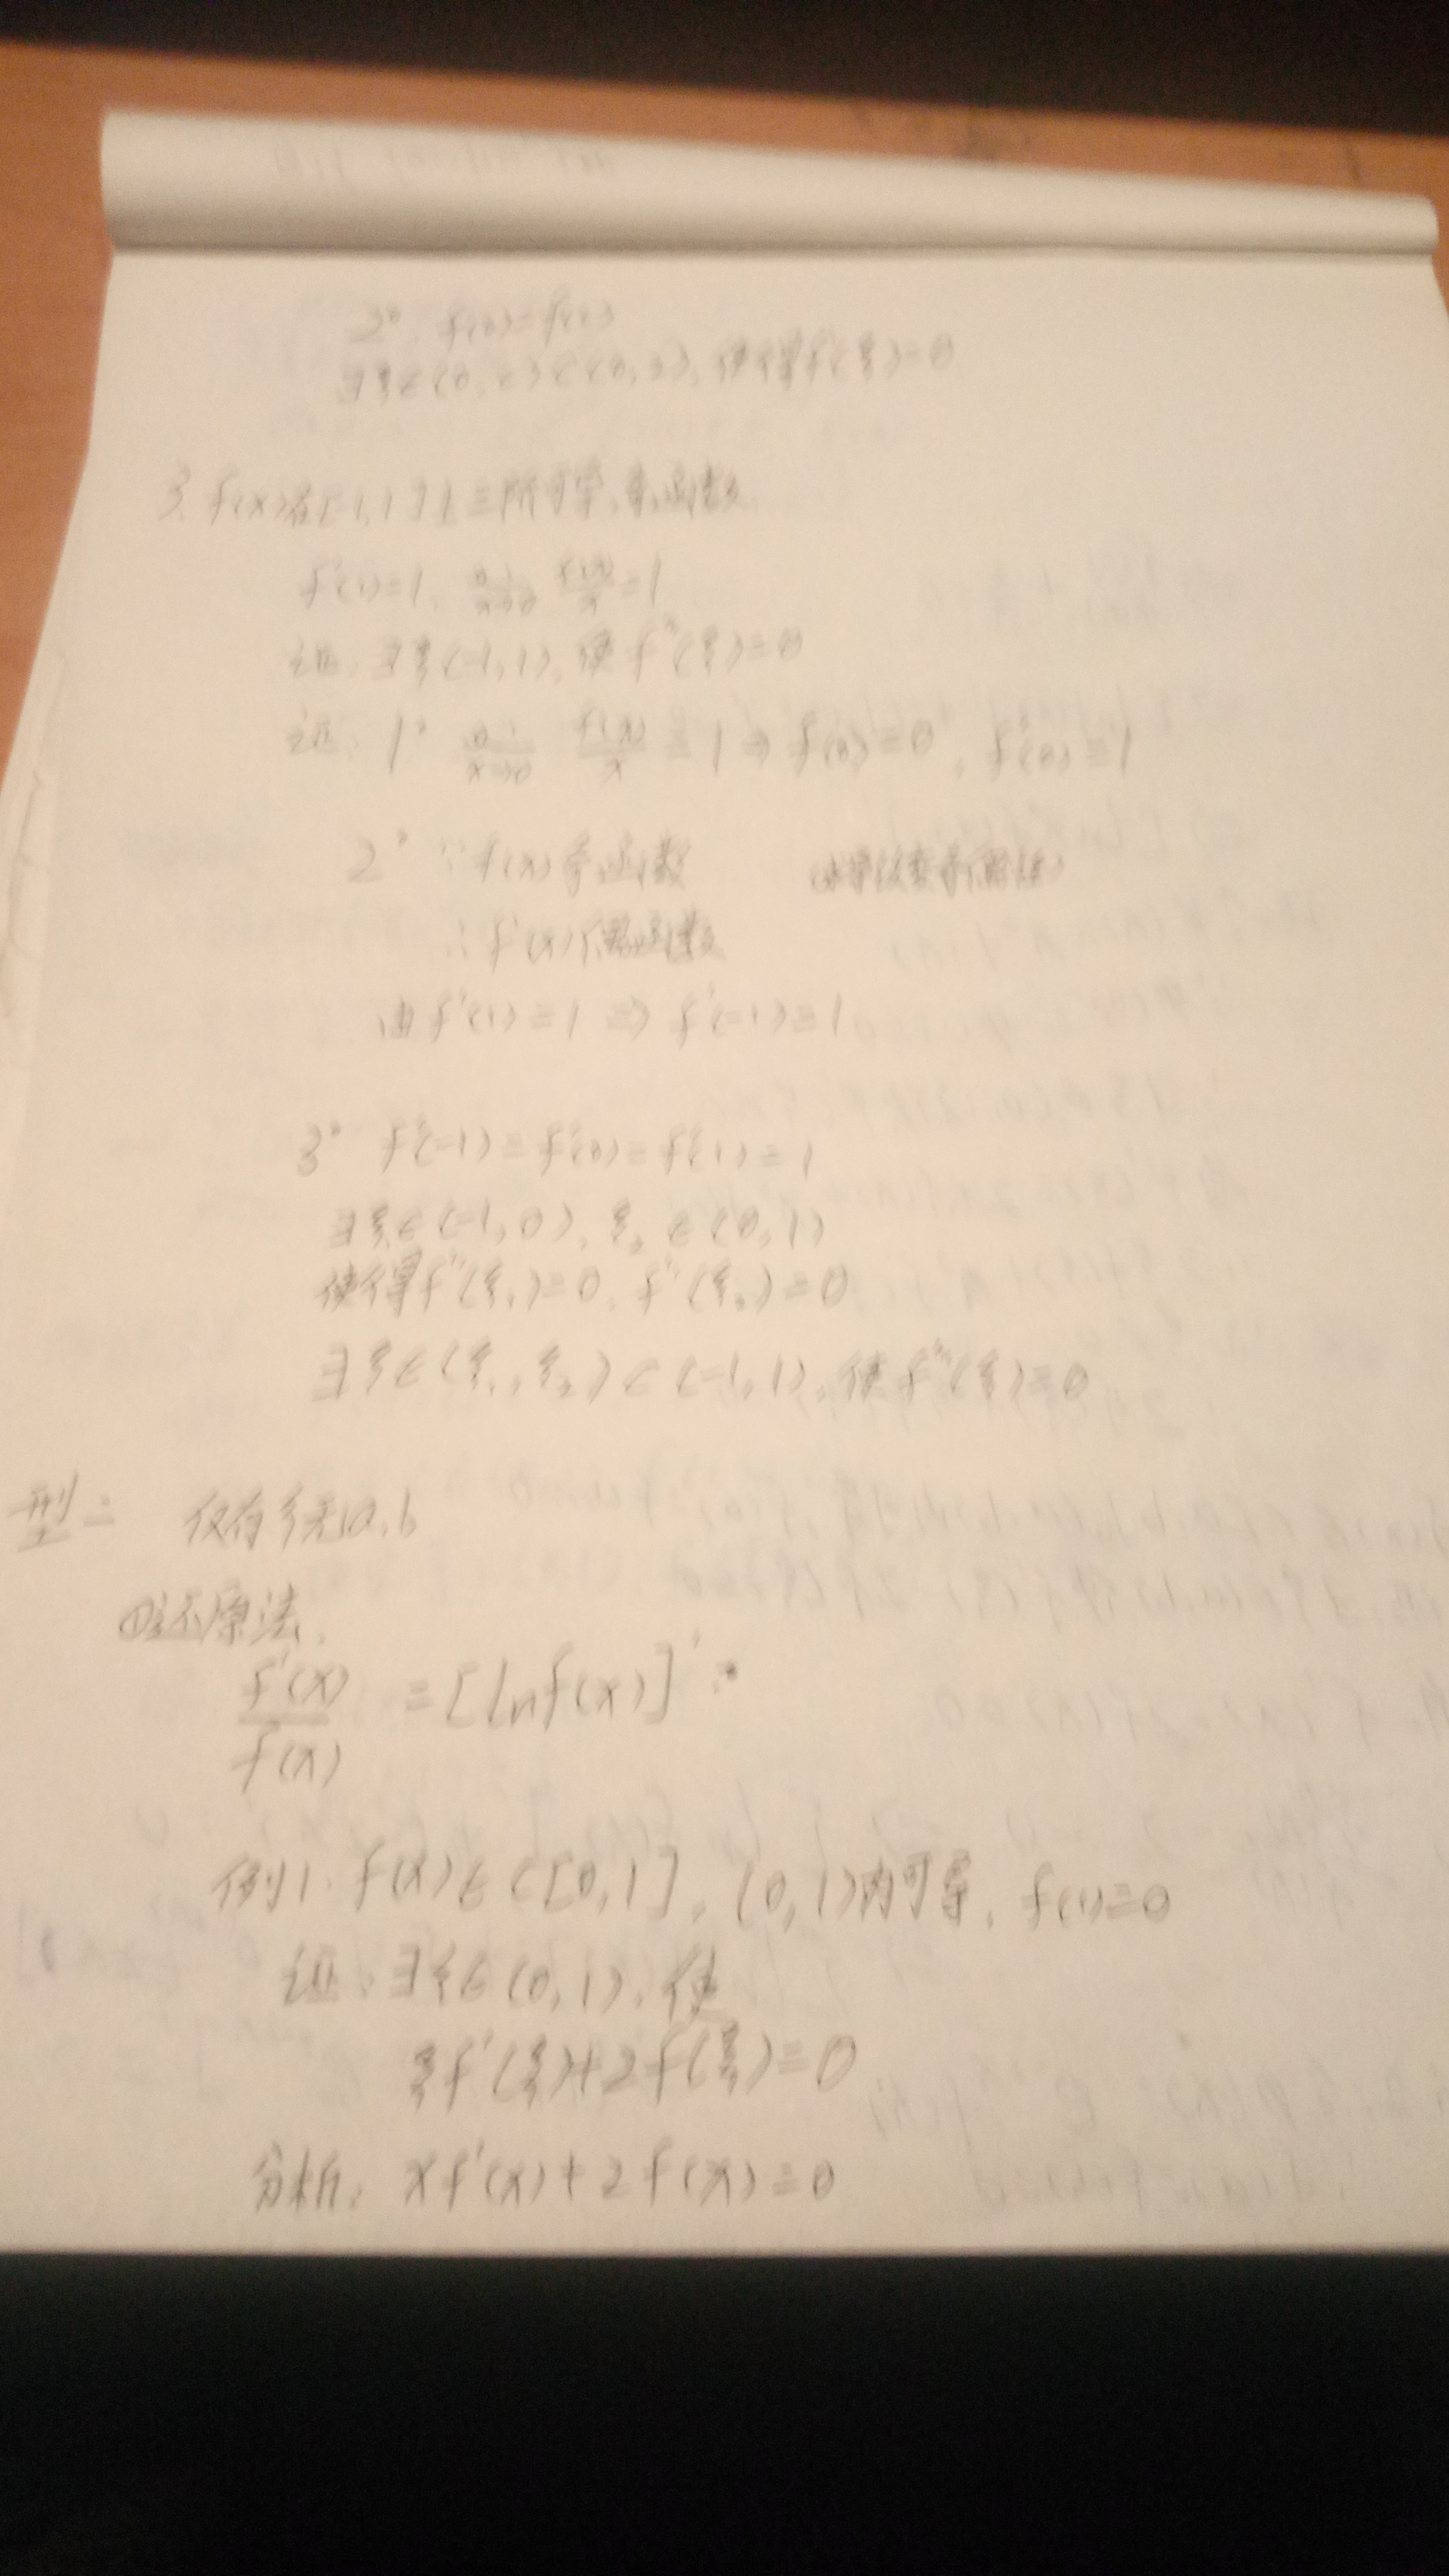 2° f(0)=f(c)
∃ξ∈(0,c)⊂(0,3), 使得f'(ξ)=0
3. f(x)在[-1,1]上三阶可导,奇函数
f'(1)=1, lim x→0 f(x)/x=1
证:∃ξ(-1,1), 使f'''(ξ)=0
证: 1° lim x→0 f(x)/x=1⇒f(0)=0, f'(0)=1
2° ∵f(x)奇函数
∴f'(x)偶函数
由f'(1)=1⇒f'(-1)=1
3° f'(-1)=f'(0)=f'(1)=1
∃ξ₁∈(-1,0), ξ₂∈(0,1)
使得f''(ξ₁)=0, f''(ξ₂)=0
∃ξ∈(ξ₁,ξ₂)⊂(-1,1), 使f'''(ξ)=0
型二 仅有ξ无a,b
①还原法.
f'(x)/f(x) =[lnf(x)]'
例1. f(x)∈C[0,1], (0,1)内可导, f(1)=0
证:∃ξ∈(0,1), 使
ξf'(ξ)+2f(ξ)=0
分析: xf'(x)+2f(x)=0